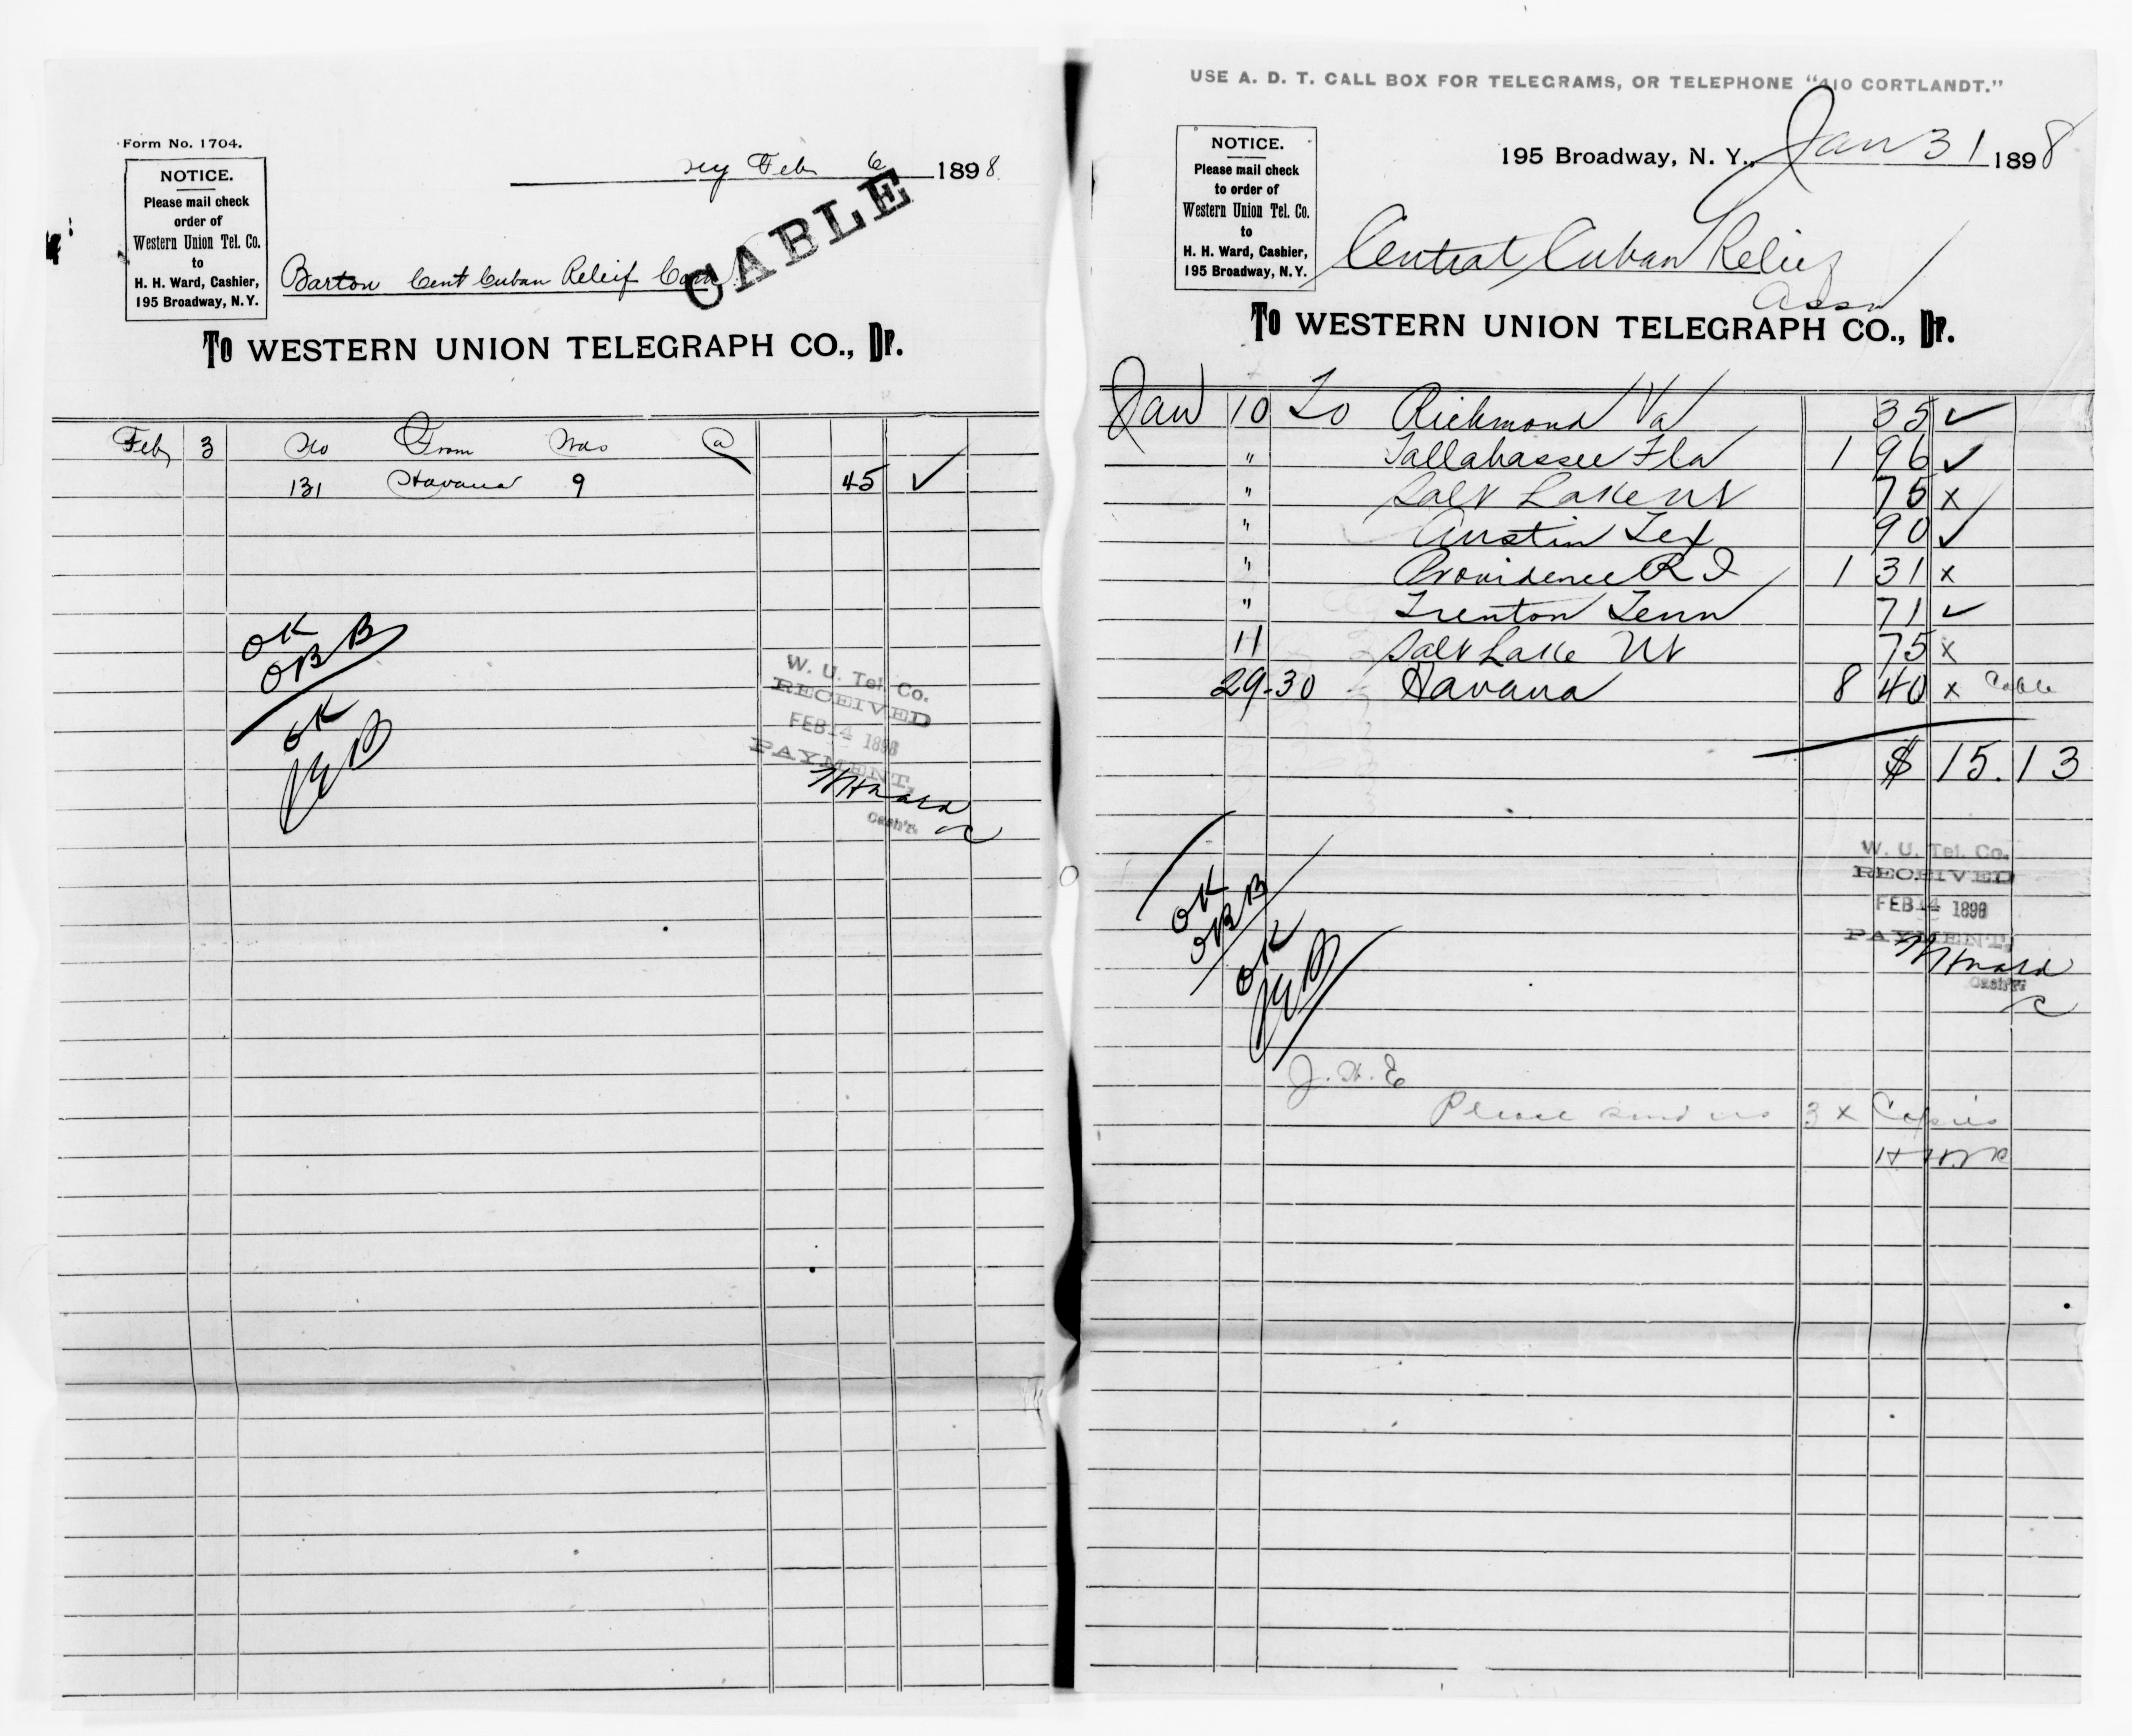 Form No. 1704.
NOTICE.
Please mail check
order of
Western Union Tel. Co.
to
H. H. Ward, Cashier,
195 Broadway, N.Y.
Feb 6 1898
CABLE
Barton Cent Cuban Releif Com
To WESTERN UNION TELEGRAPH CO., Dr.
Feb 3 No From Wds @
131 Havana 9 45 ✓
OK
OBB
OK
W. U. Tel. Co.
RECEIVED
FEB 14 1898
PAYMENT,
HHWard
Cash'r.
C
USE A. D. T. CALL BOX FOR TELEGRAMS, OR TELEPHONE "410 CORTLANDT."
NOTICE.
Please mail check
to order of
Western Union Tel. Co.
to
H. H. Ward, Cashier,
195 Broadway, N.Y.
195 Broadway, N. Y., Jan 31 1898
Central Cuban Relief
Assn
To WESTERN UNION TELEGRAPH CO., Dr.
Jan 10 To Richmond Va 35 ✓
" Tallahassee Fla 1 96 ✓
" Salt Lake Ut 75 x
" Austin Tex 90 ✓
" Providence R I 1 31 x
" Trenton Tenn 71 ✓
11 Salt Lake Ut 75 x
29-30 Havana 8 40 x Cable
$ 15.13
OK
OBB
OK
W. U. Tel. Co.
RECEIVED
FEB 14 1898
PAYMENT,
HHWard
Cash'r.
C
J. H. E
Please send us 3 x Copies